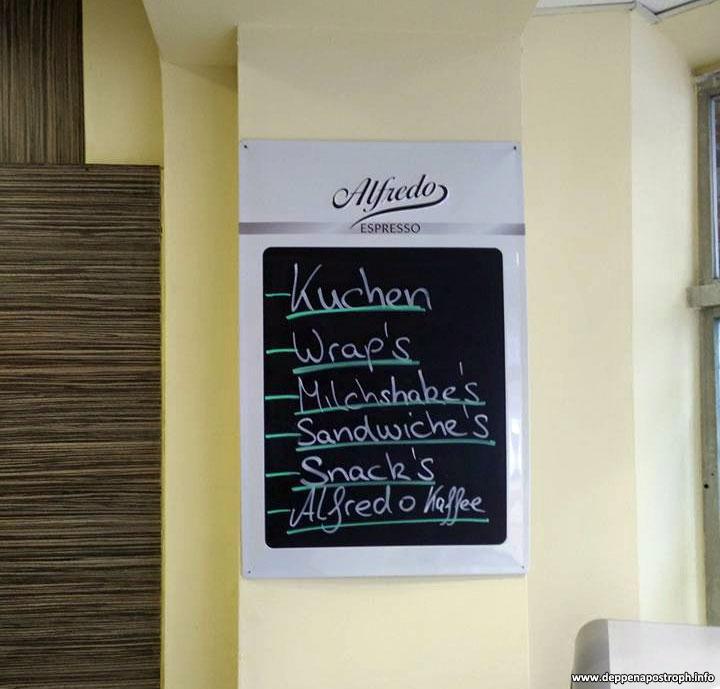 Alfredo
ESPRESSO
- Kuchen
- Wrap's
- Milchshake's
- Sandwiche's
- Snack's
- Alfredo Kaffee
www.deppenapostroph.info